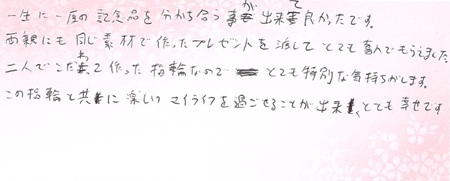 一生に一度の記念品を分かち合う事が出来て良かったです。
両親にも同じ素材で作ったプレゼントを渡してとても喜んでもらえました。
二人でこだわって作った指輪なのでとても特別な気持ちがします。
この指輪と共に楽しいマイライフを過ごせることが出来、とても幸せです